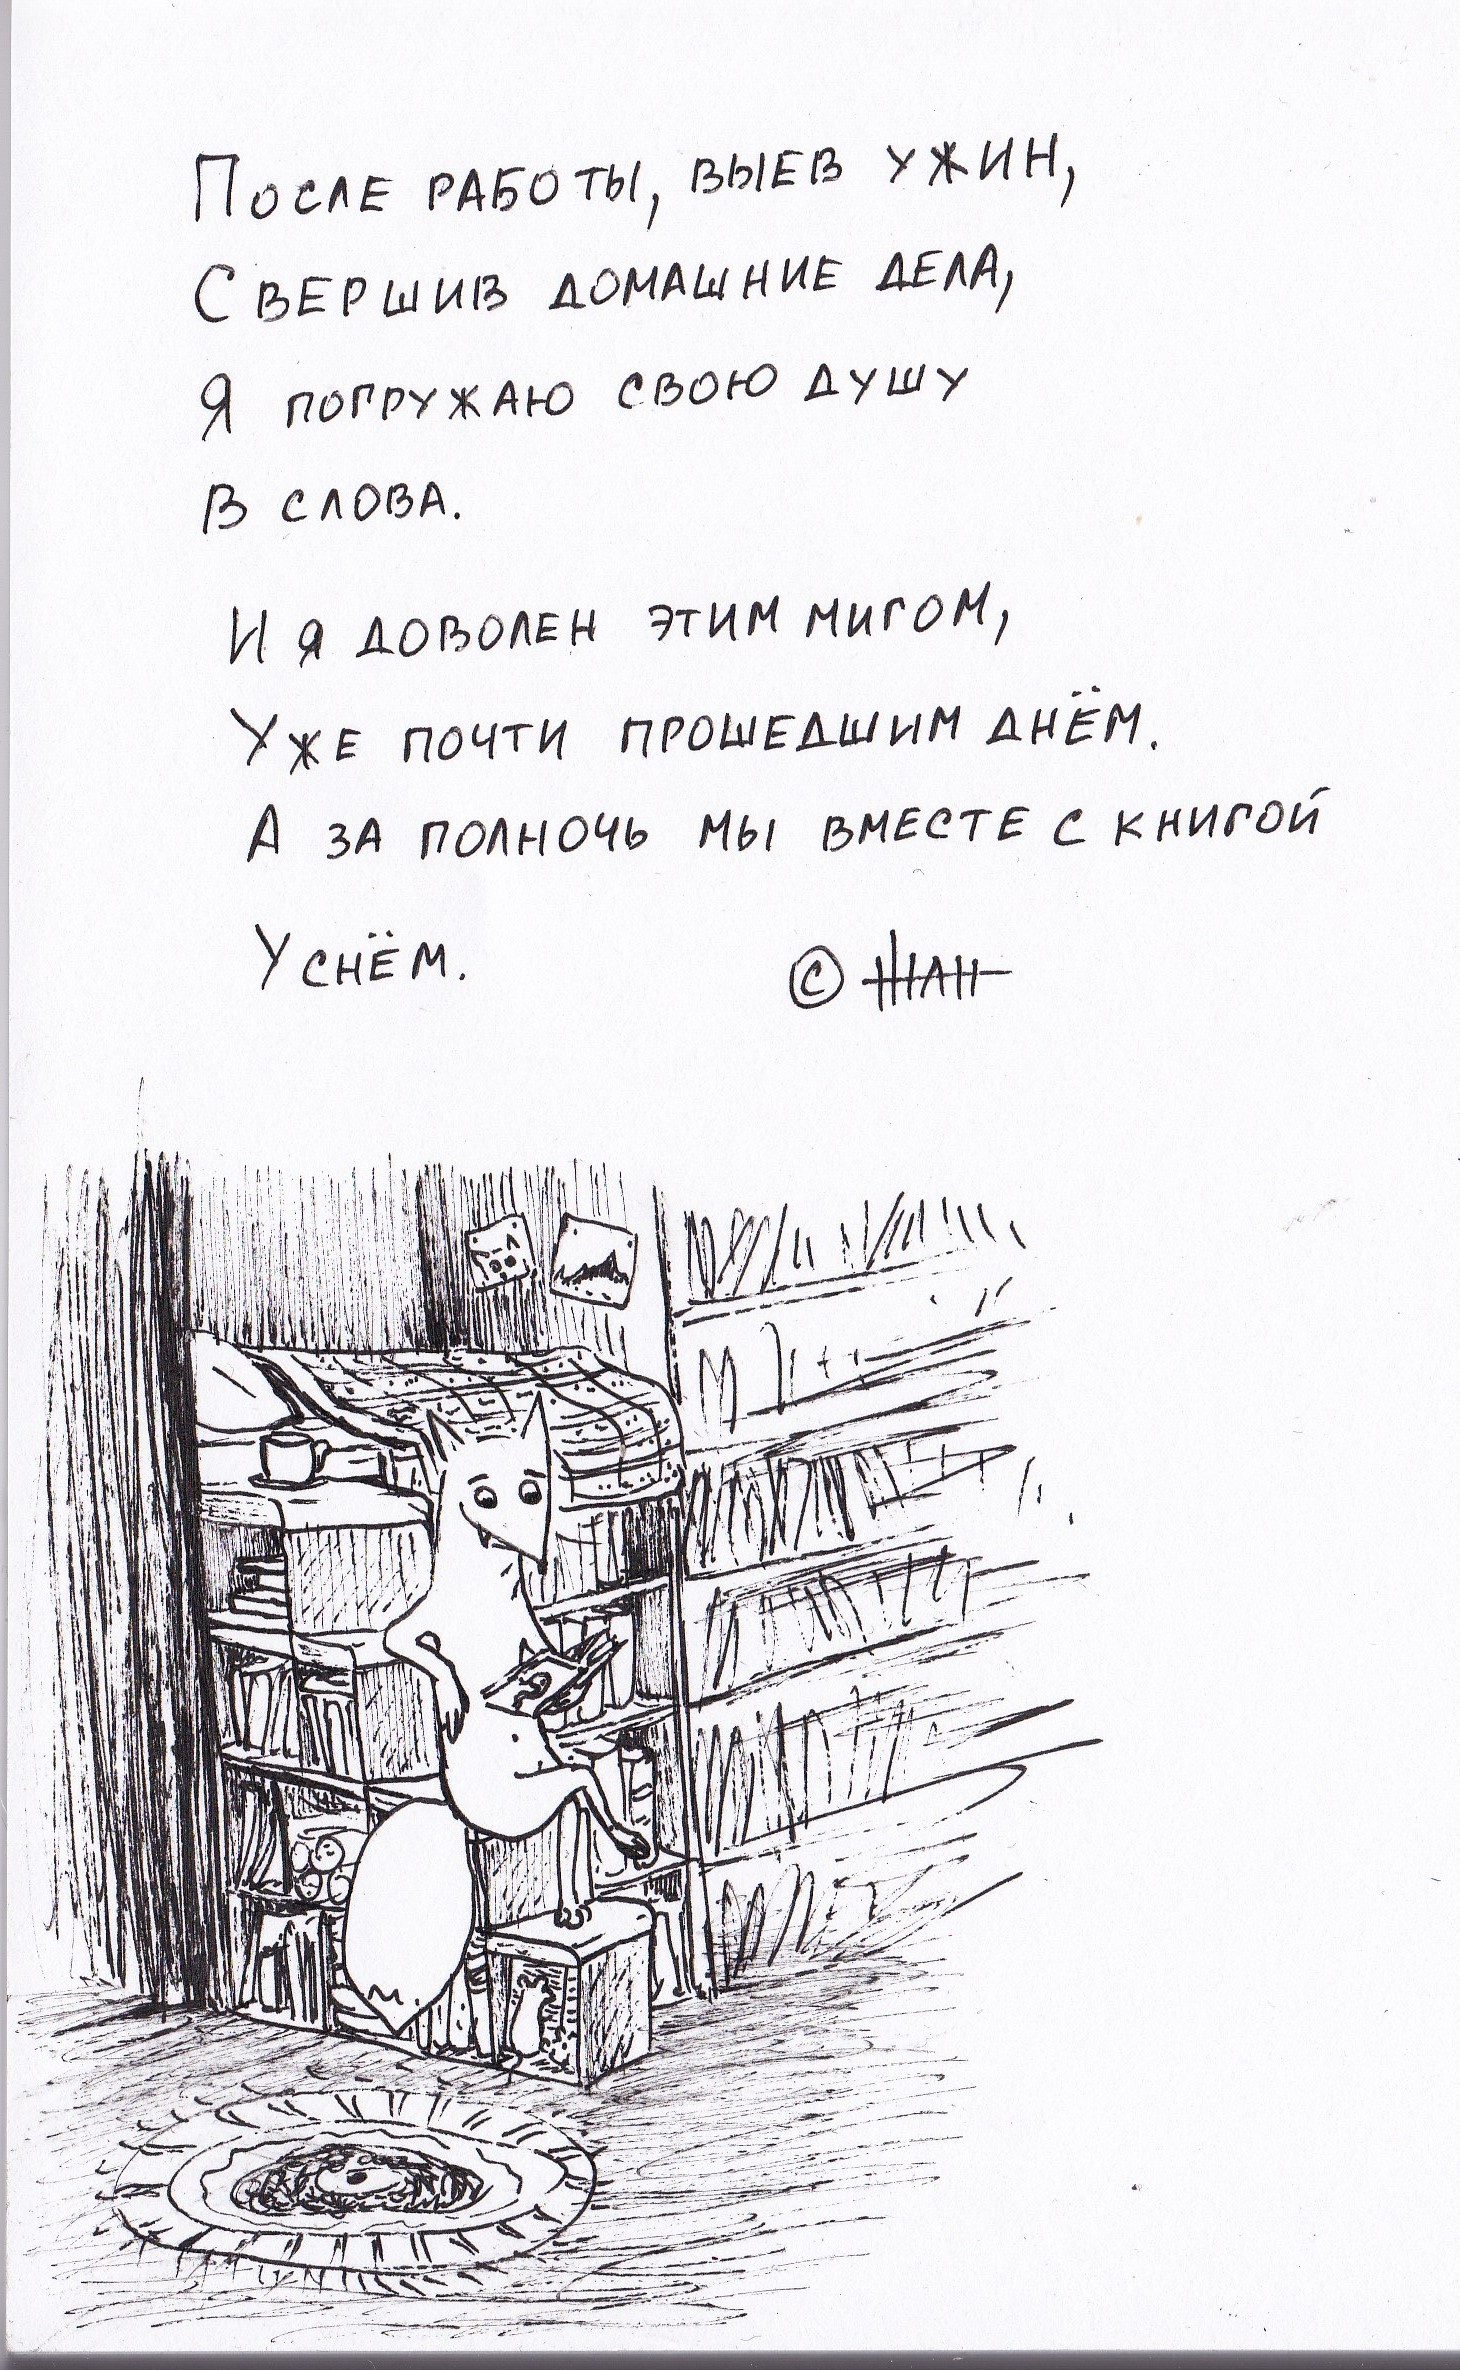 После работы, выев ужин,
Свершив домашние дела,
Я погружаю свою душу
В слова.
И я доволен этим мигом,
Уже почти прошедшим днём.
А за полночь мы вместе с книгой
Уснём. © ЖАН